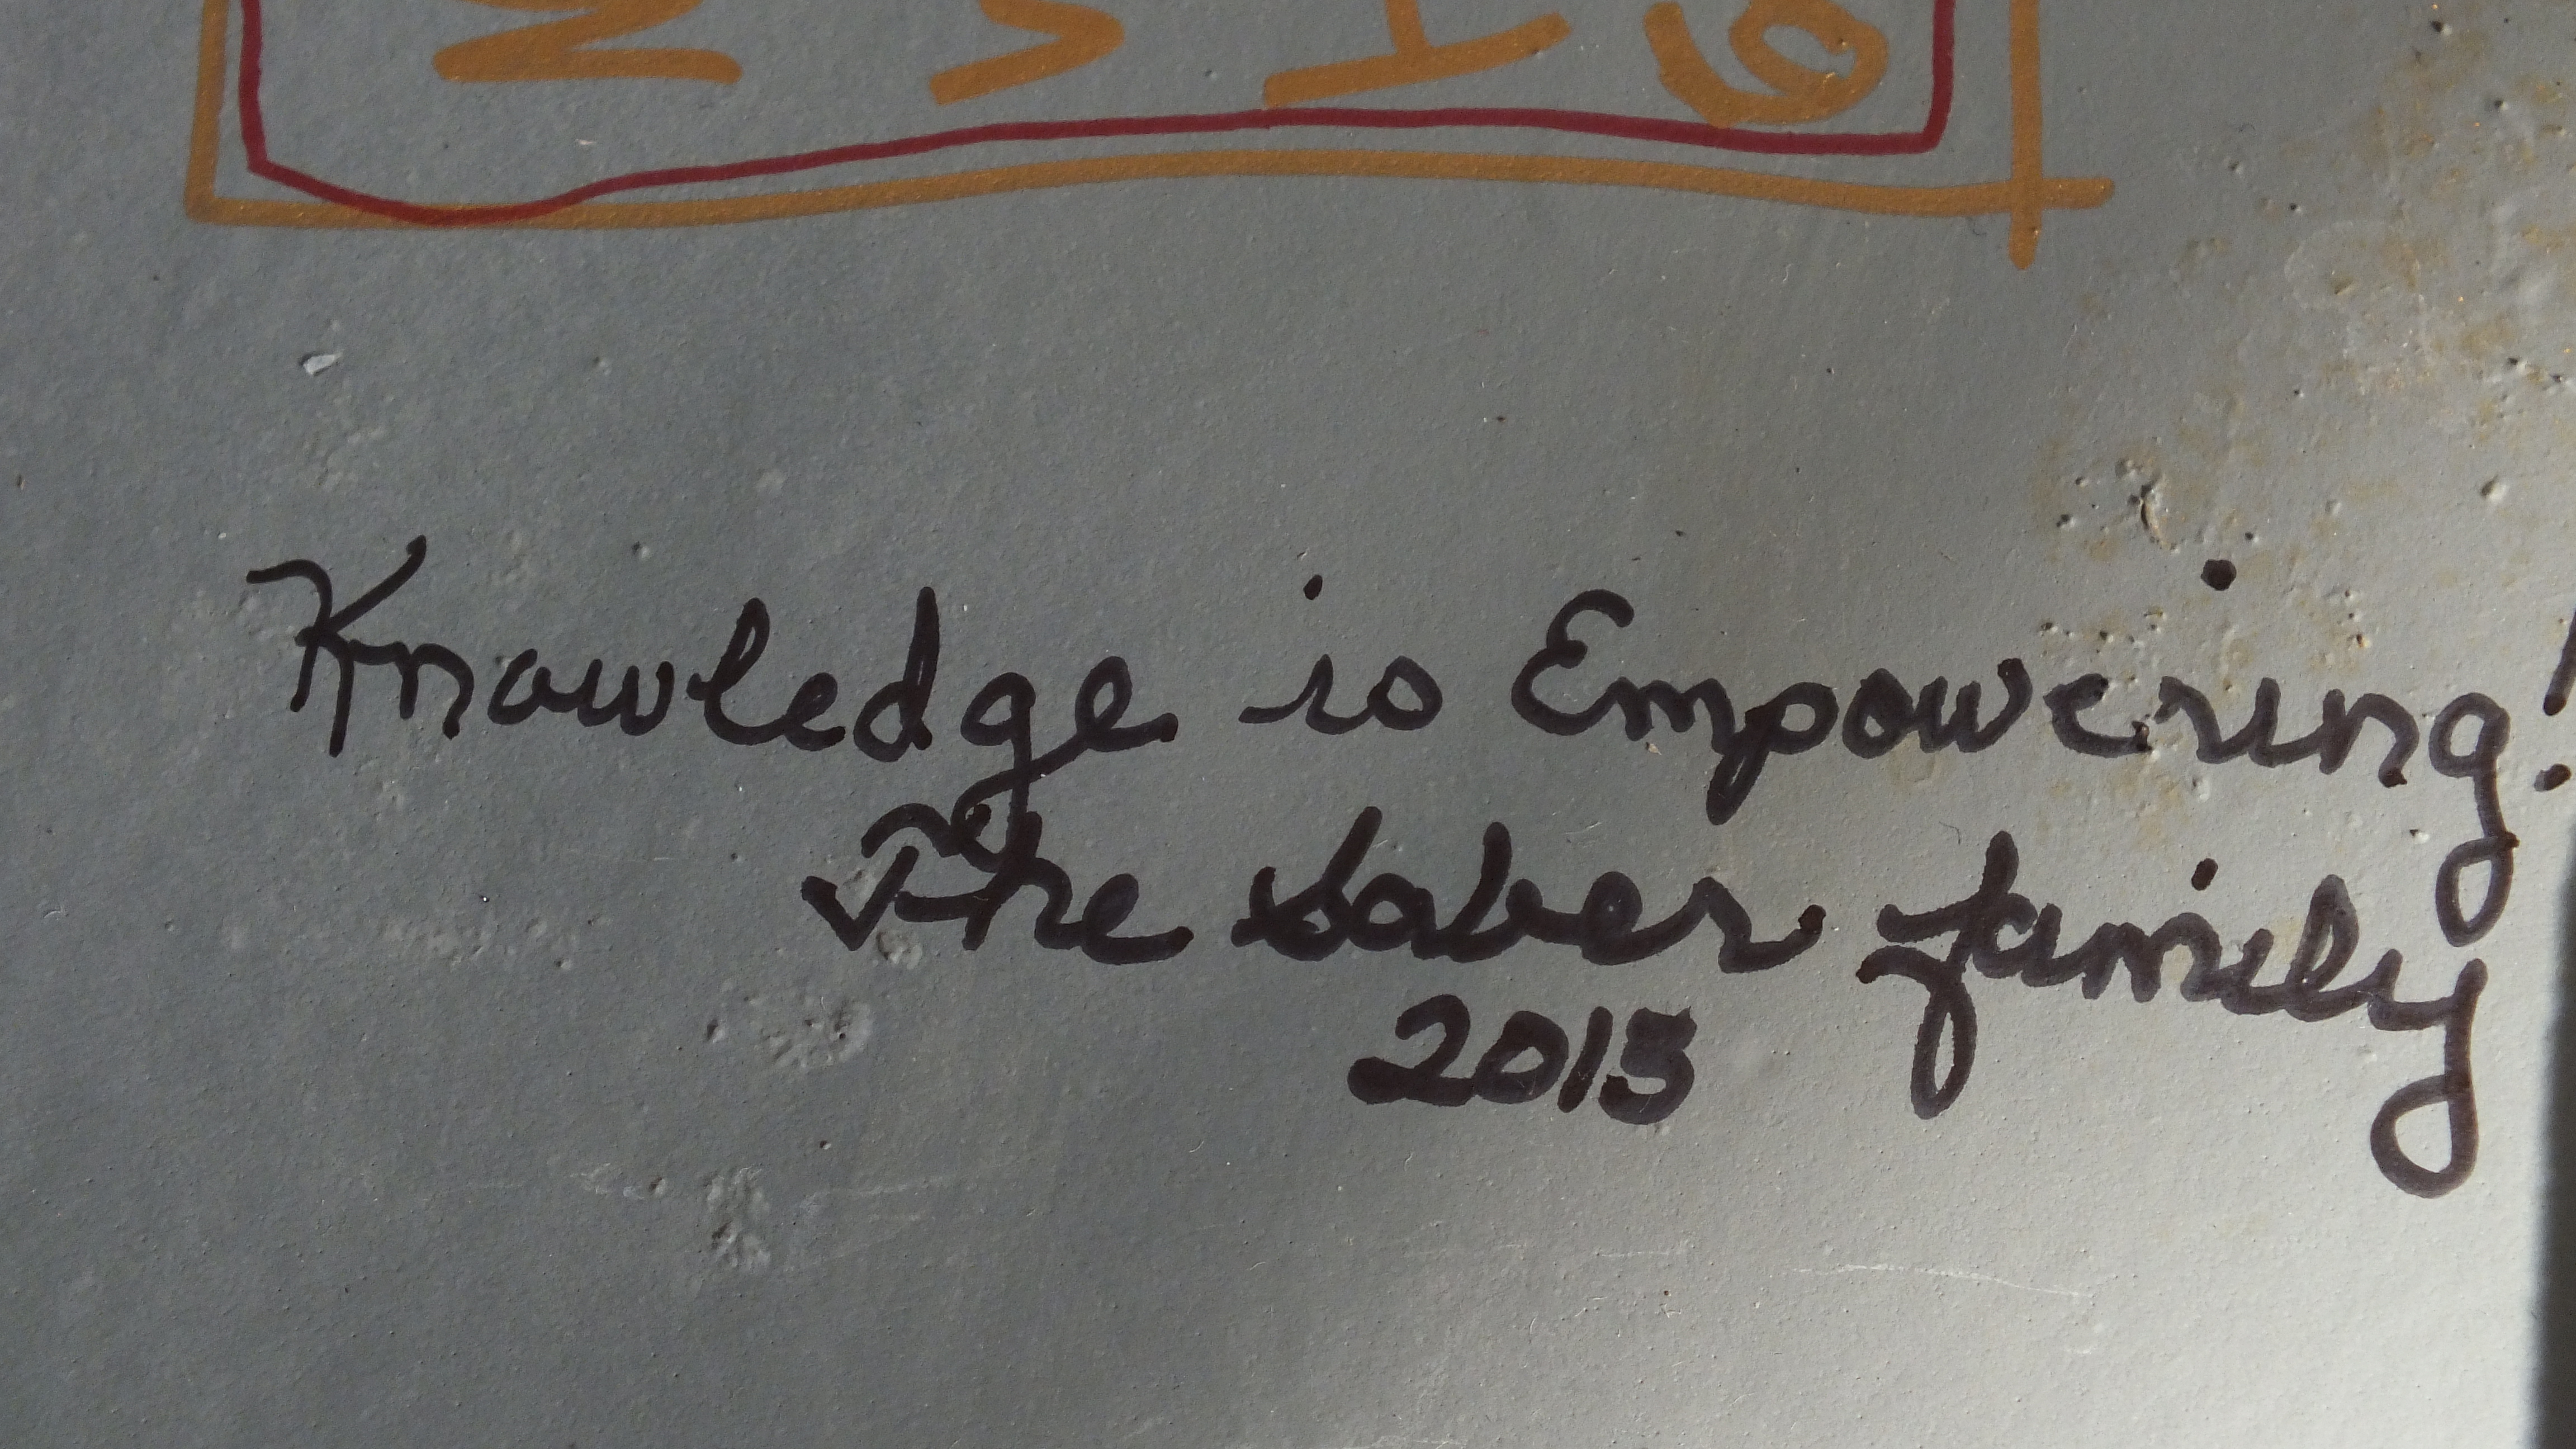 Knowledge is Empowering!
The Saber family
2013